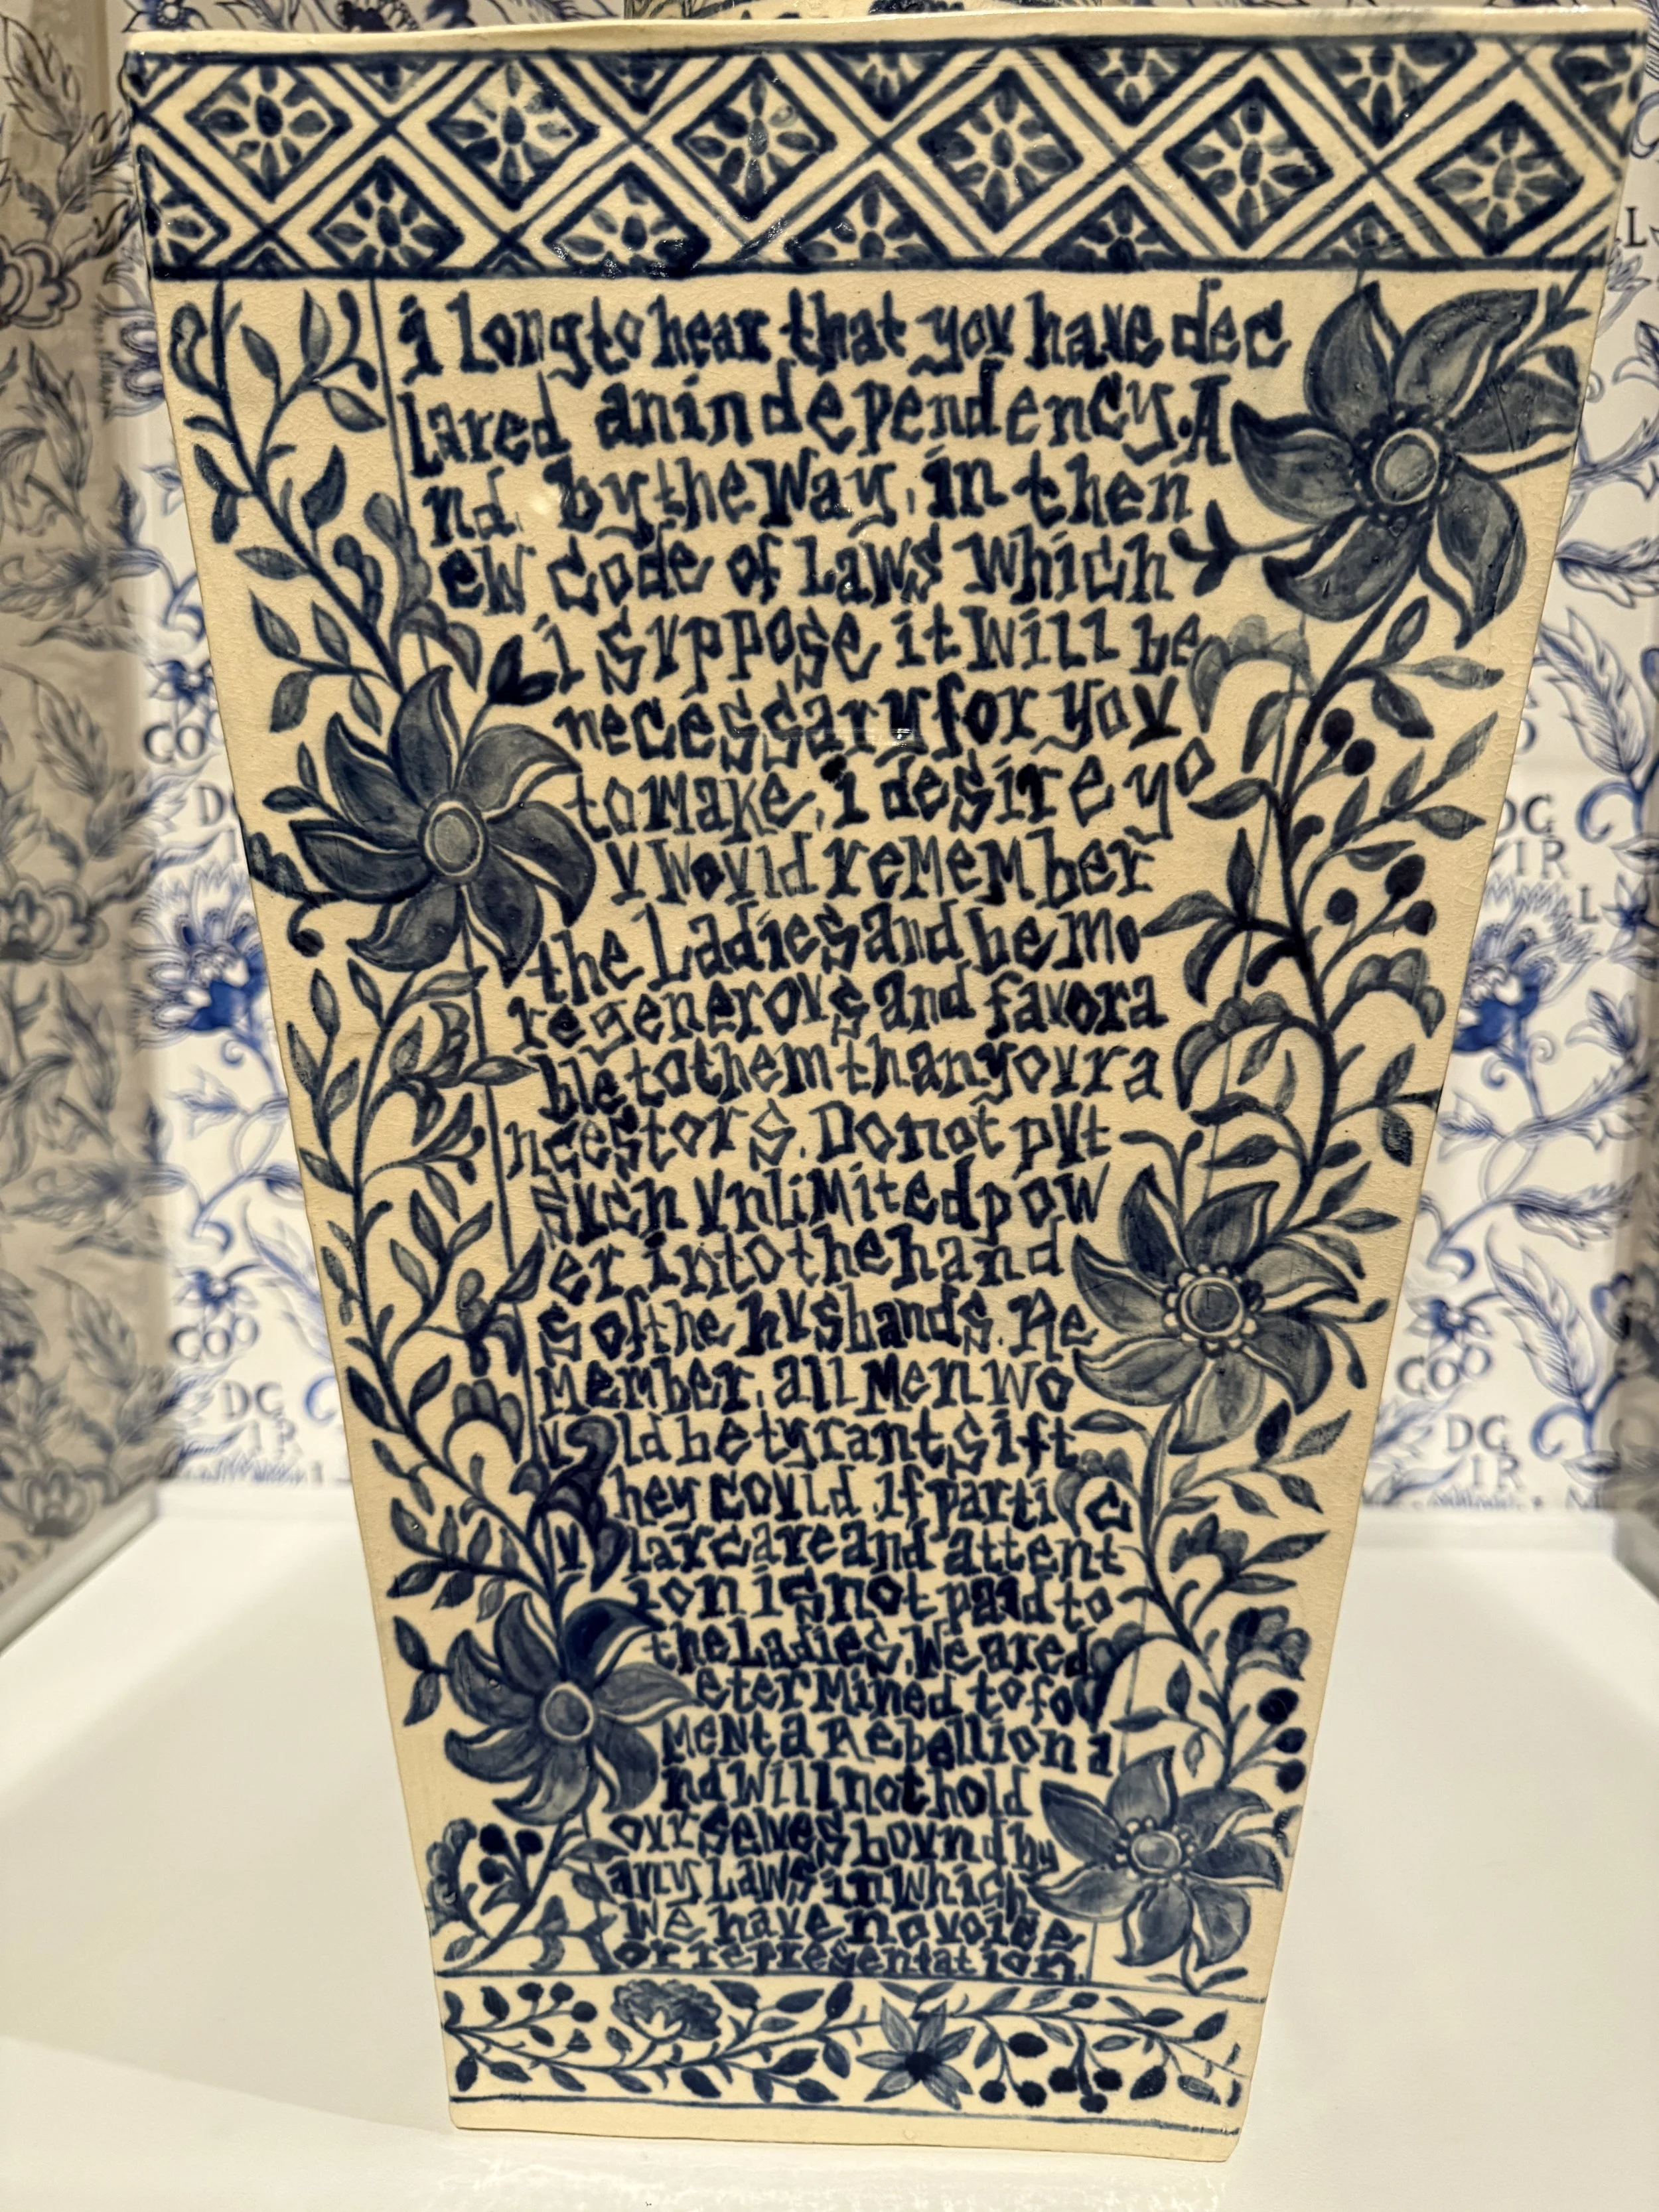 i long to hear that you have dec
lared an independency. A
nd by the Way, in the n
eW code of Laws Which
i suppose it Will be
necessary for you
to Make, i desire yo
u Would reMeMber
the Ladies and be Mo
re generous and favora
ble to them than your a
ncestors. Do not put
such unliMited pow
er into the hand
s of the husbands. Re
Member, all Men Wo
uld be tyrants if t
hey could. if partic
ular care and attent
ion is not paid to
the Ladies, We are d
eterMined to fo
Ment a Rebellion a
nd Will not hold
ourselves bound by
any LaWs in Which
We have no voice
or representation.
COO
DG
IR
COO
DG
IR
L
DG
IR
COO
DG
IR